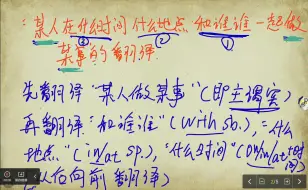 ：某人在什么时间 什么地点 和谁谁一起做
③ ② ①
某事的翻译
先翻译“某人做某事”（即主谓宾）
再翻译：“和谁谁”（with sb.），“什么
地点”（in/at sp.），“什么时间”（on/in/at时间）
（从后向前翻译）
2/8